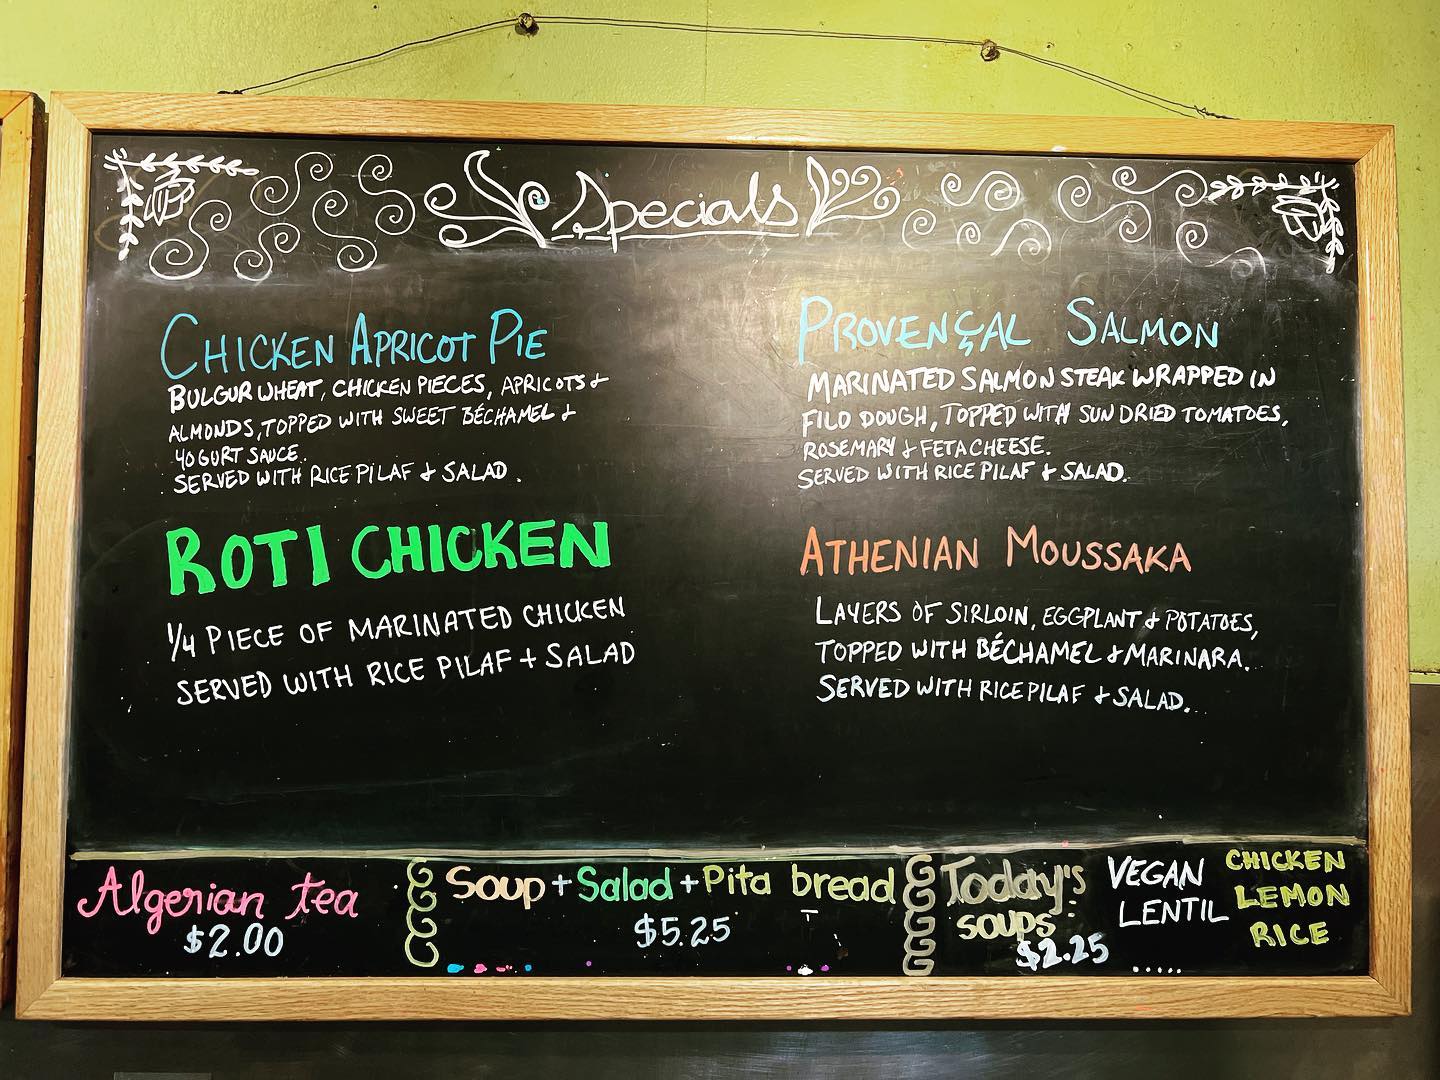 Specials
CHICKEN APRICOT PIE
BULGUR WHEAT, CHICKEN PIECES, APRICOTS &
ALMONDS, TOPPED WITH SWEET BÉCHAMEL &
YOGURT SAUCE.
SERVED WITH RICE PILAF & SALAD.
ROTI CHICKEN
1/4 PIECE OF MARINATED CHICKEN
SERVED WITH RICE PILAF + SALAD
PROVENÇAL SALMON
MARINATED SALMON STEAK WRAPPED IN
FILO DOUGH, TOPPED WITH SUN DRIED TOMATOES,
ROSEMARY & FETA CHEESE.
SERVED WITH RICE PILAF & SALAD.
ATHENIAN MOUSSAKA
LAYERS OF SIRLOIN, EGGPLANT & POTATOES,
TOPPED WITH BÉCHAMEL & MARINARA.
SERVED WITH RICE PILAF & SALAD.
Algerian tea
$2.00
Soup + Salad + Pita bread
$5.25
Today's
SOUPS:
$2.25
VEGAN
LENTIL
CHICKEN
LEMON
RICE